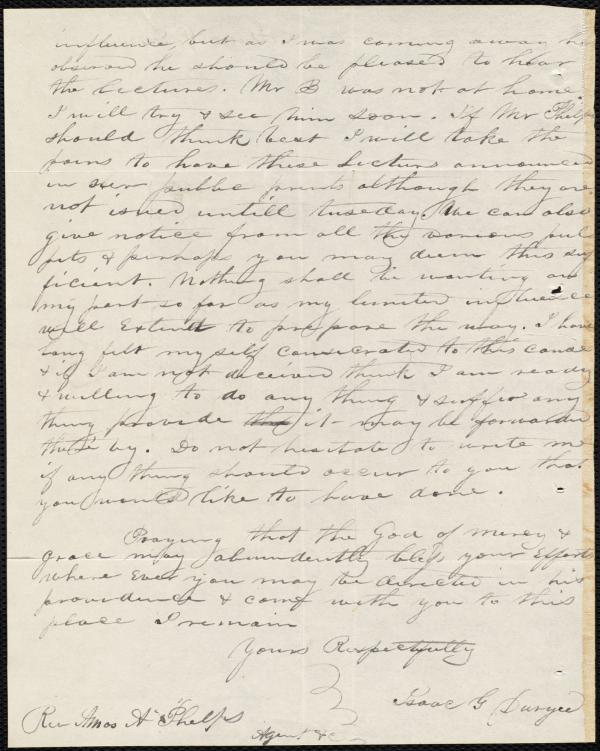 influence, but as I was coming away he
observed he should be pleased to hear
the lectures. Mr B was not at home.
I will try & see him soon. If Mr Phelps
should think best I will take the
pains to have these Lectures announced
in our public prints although they are
not issued untill tuesday. We can also
give notice from all the various pul
pits & perhaps you may deem this suf
ficient. Nothing shall be wanting on
my part so far as my limited influence
will extend to prepare the way. I have
long felt myself consecrated to this cause
& if I am not deceived think I am ready
& willing to do any thing & suffer any
thing provide the it may be forwarded
there by. Do not hesitate to write me
if any thing should occur to you that
you would like to have done.
Praying that the God of mercy &
grace may abundently bless your Efforts
where Ever you may be directed in his
providence & come with you to this
place I remain
Yours Respectfully
Isaac G Duryee
Rev Amos A Phelps
Agent &c